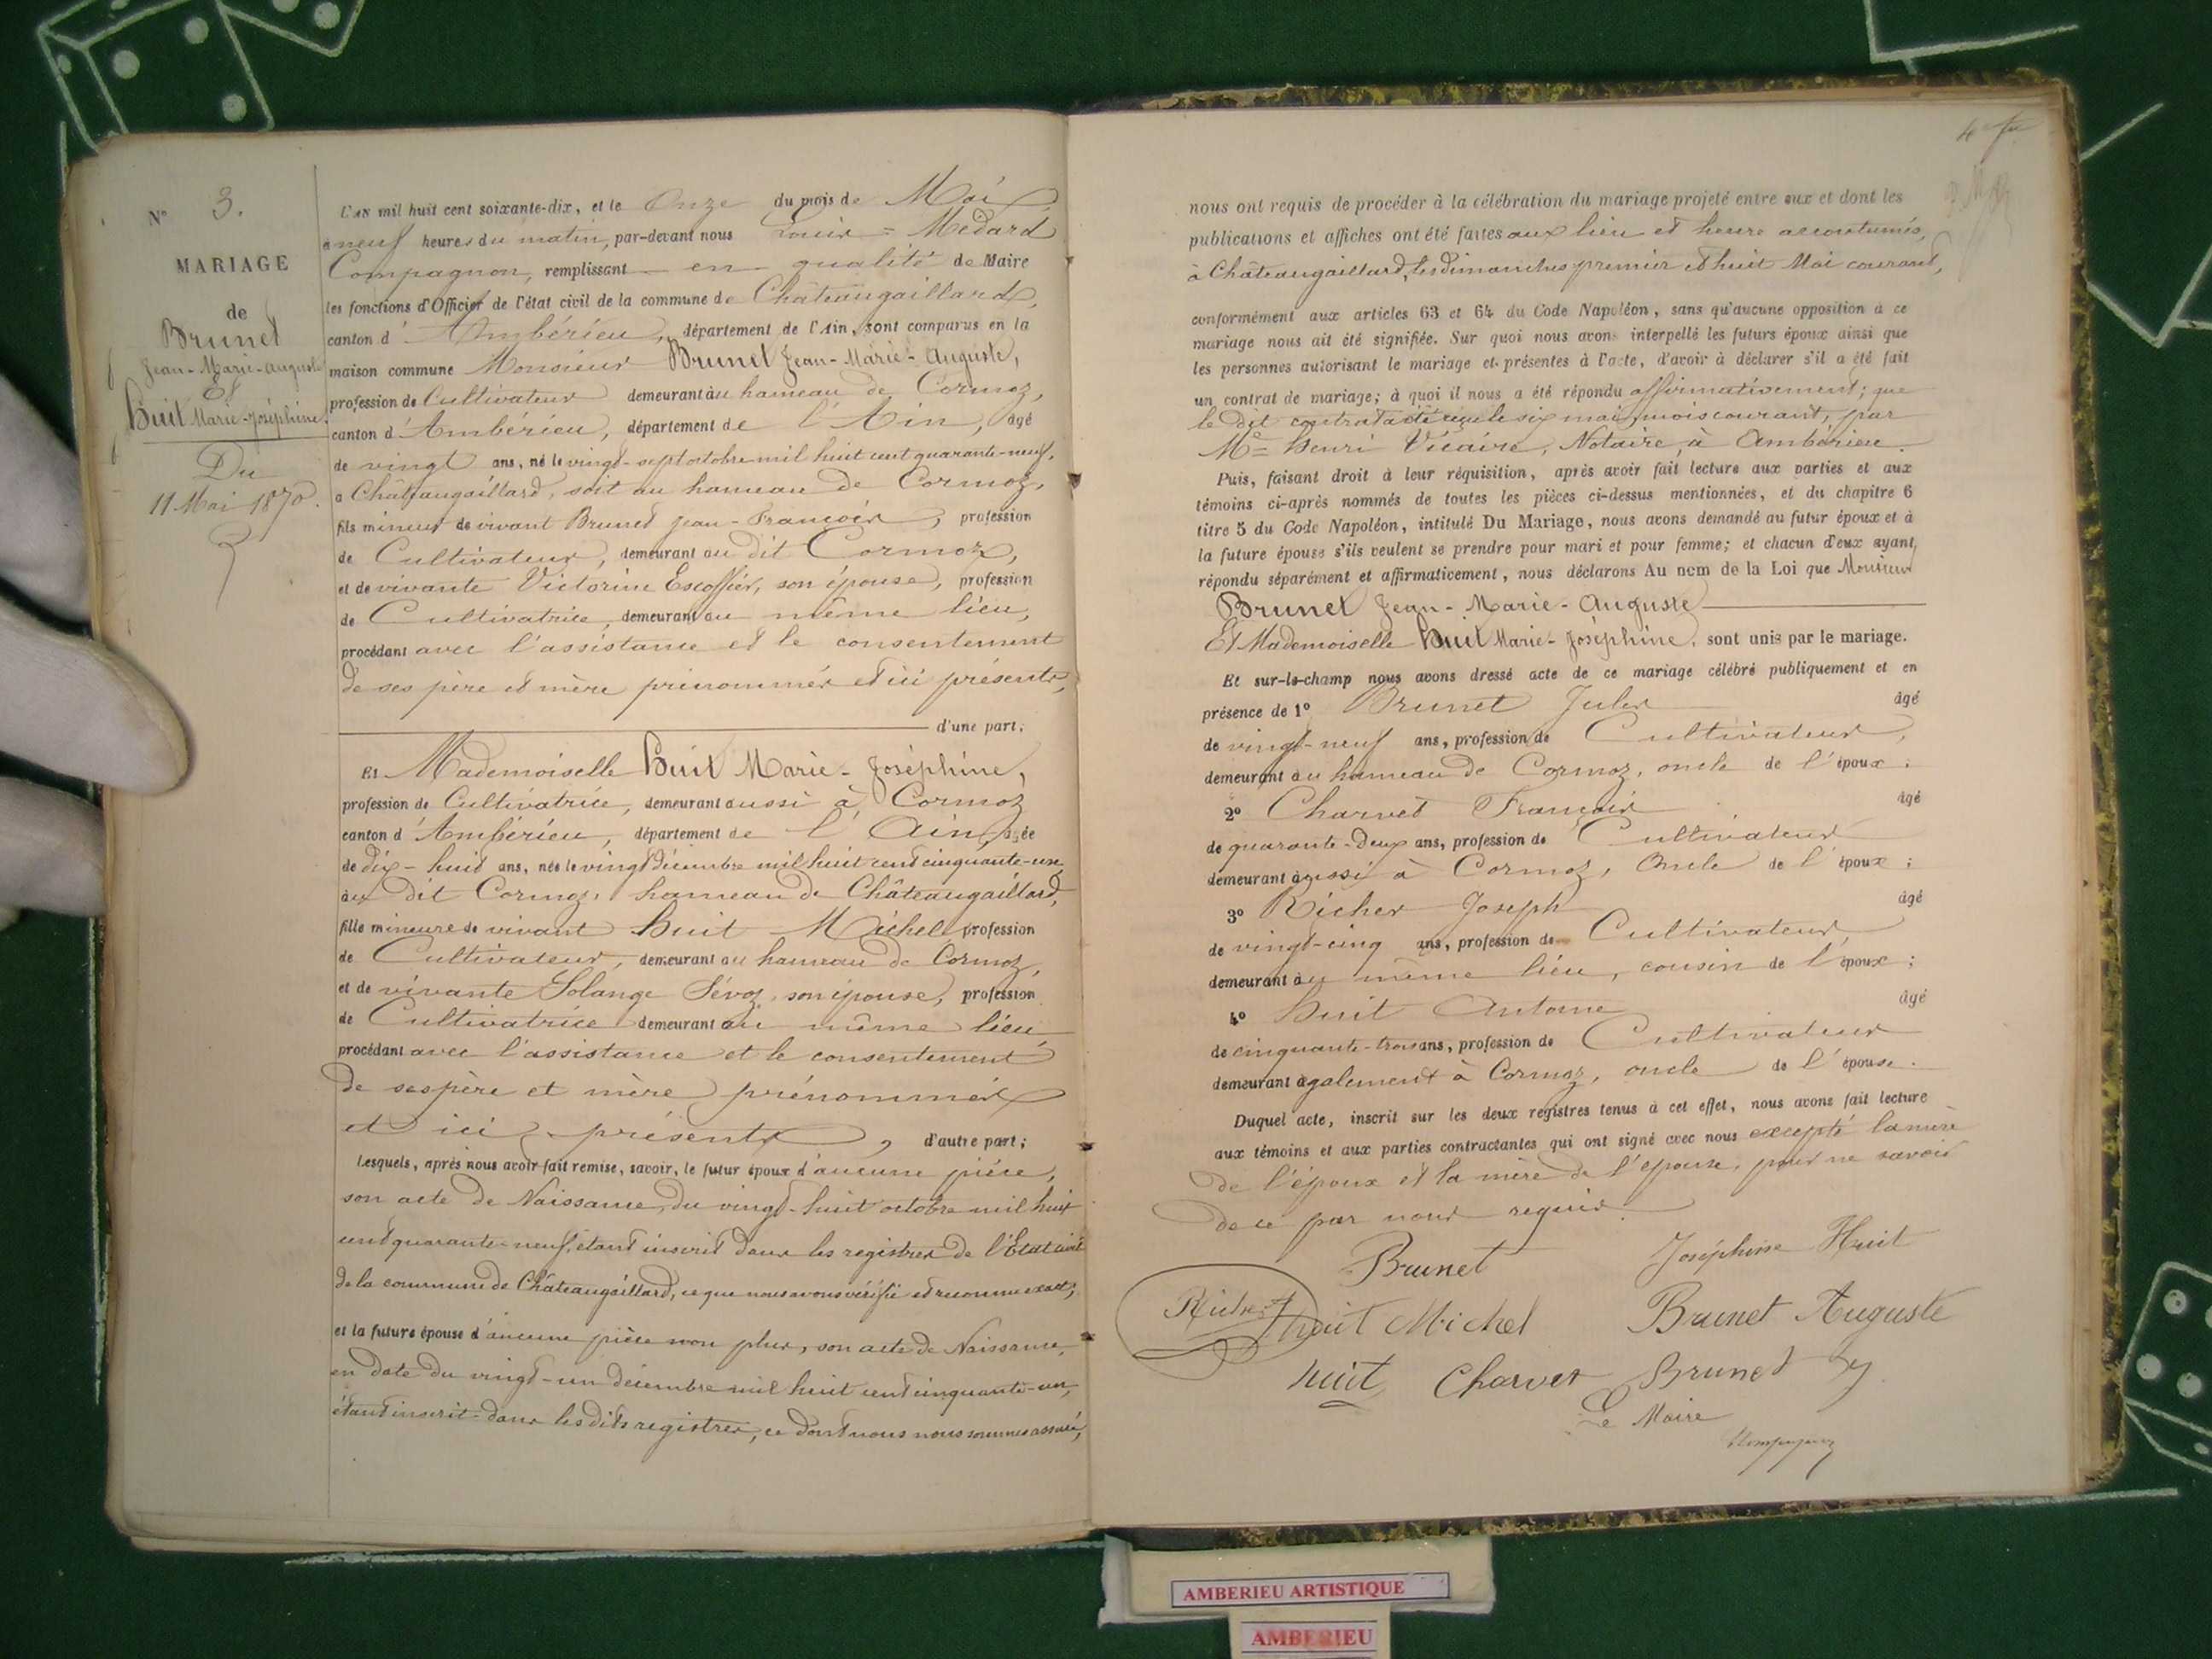 N° 3.
MARIAGE
de
Brunet
Jean-Marie-Auguste
Et
Huit Marie-Joséphine.
Du
11 Mai 1870.
L'AN mil huit cent soixante-dix, et le Onze du mois de Mai,
à neuf heures du matin, par-devant nous Louis = Médard
Compagnon, remplissant en qualité de Maire
les fonctions d'Officier de l'état civil de la commune de Châteaugaillard,
canton d'Ambérieu, département de l'Ain, sont comparus en la
maison commune Monsieur Brunet Jean-Marie-Auguste,
profession de Cultivateur demeurant au hameau de Cormoz,
canton d'Ambérieu, département de l'Ain, âgé
de vingt ans, né le vingt-sept octobre mil huit cent quarante-neuf,
à Châteaugaillard, soit au hameau de Cormoz,
fils mineur de vivant Brunet Jean-François, profession
de Cultivateur, demeurant au dit Cormoz,
et de vivante Victorine Escoffier, son épouse, profession
de Cultivatrice, demeurant au même lieu,
procédant avec l'assistance et le consentement
de ses père et mère prénommés et ici présents,
d'une part;
Et Mademoiselle Huit Marie-Joséphine,
profession de Cultivatrice, demeurant aussi à Cormoz
canton d'Ambérieu, département de l'Ain, âgée
de dix-huit ans, née le vingt décembre mil huit cent cinquante-un,
au dit Cormoz, hameau de Châteaugaillard,
fille mineure de vivant Huit Michel, profession
de Cultivateur, demeurant au hameau de Cormoz,
et de vivante Solange Sévoz, son épouse, profession
de Cultivatrice demeurant au même lieu,
procédant avec l'assistance et le consentement
de ses père et mère prénommés
et ici présents, d'autre part;
Lesquels, après nous avoir fait remise, savoir, le futur époux d'aucune pièce,
son acte de Naissance, du vingt-huit octobre mil huit
cent quarante-neuf, étant inscrit dans les registres de l'État civil
de la commune de Châteaugaillard, ce que nous avons vérifié et reconnu exact,
et la future épouse d'aucune pièce non plus, son acte de Naissance,
en date du vingt-un décembre mil huit cent cinquante-un,
étant inscrit dans les dits registres, ce dont nous nous sommes assuré,
nous ont requis de procéder à la célébration du mariage projeté entre eux et dont les
publications et affiches ont été faites aux lieu et heure accoutumés,
à Châteaugaillard, les dimanches premier et huit Mai courant,
conformément aux articles 63 et 64 du Code Napoléon, sans qu'aucune opposition à ce
mariage nous ait été signifiée. Sur quoi nous avons interpellé les futurs époux ainsi que
les personnes autorisant le mariage et présentes à l'acte, d'avoir à déclarer s'il a été fait
un contrat de mariage; à quoi il nous a été répondu affirmativement; que
le dit contrat a été reçu le six mai, mois courant, par
Me Henri Vicaire, Notaire, à Ambérieu.
Puis, faisant droit à leur réquisition, après avoir fait lecture aux parties et aux
témoins ci-après nommés de toutes les pièces ci-dessus mentionnées, et du chapitre 6
titre 5 du Code Napoléon, intitulé Du Mariage, nous avons demandé au futur époux et à
la future épouse s'ils veulent se prendre pour mari et pour femme; et chacun d'eux ayant
répondu séparément et affirmativement, nous déclarons Au nom de la Loi que Monsieur
Brunet Jean-Marie-Auguste
Et Mademoiselle Huit Marie-Joséphine, sont unis par le mariage.
Et sur-le-champ nous avons dressé acte de ce mariage célébré publiquement et en
présence de 1° Brunet Jules âgé
de vingt-neuf ans, profession de Cultivateur,
demeurant au hameau de Cormoz, oncle de l'époux;
2° Charvet François âgé
de quarante-deux ans, profession de Cultivateur
demeurant aussi à Cormoz, Oncle de l'époux;
3° Richer Joseph âgé
de vingt-cinq ans, profession de Cultivateur,
demeurant au même lieu, cousin de l'époux;
4° Huit Antoine âgé
de cinquante-trois ans, profession de Cultivateur
demeurant également à Cormoz, oncle de l'épouse.
Duquel acte, inscrit sur les deux registres tenus à cet effet, nous avons fait lecture
aux témoins et aux parties contractantes qui ont signé avec nous excepté la mère
de l'époux et la mère de l'épouse, pour ne savoir
de ce par nous requis.
Brunet Joséphine Huit
Richer huit Michel Brunet Auguste
huit Charvet Brunet
Le Maire
Compagnon
AMBERIEU ARTISTIQUE
AMBERIEU